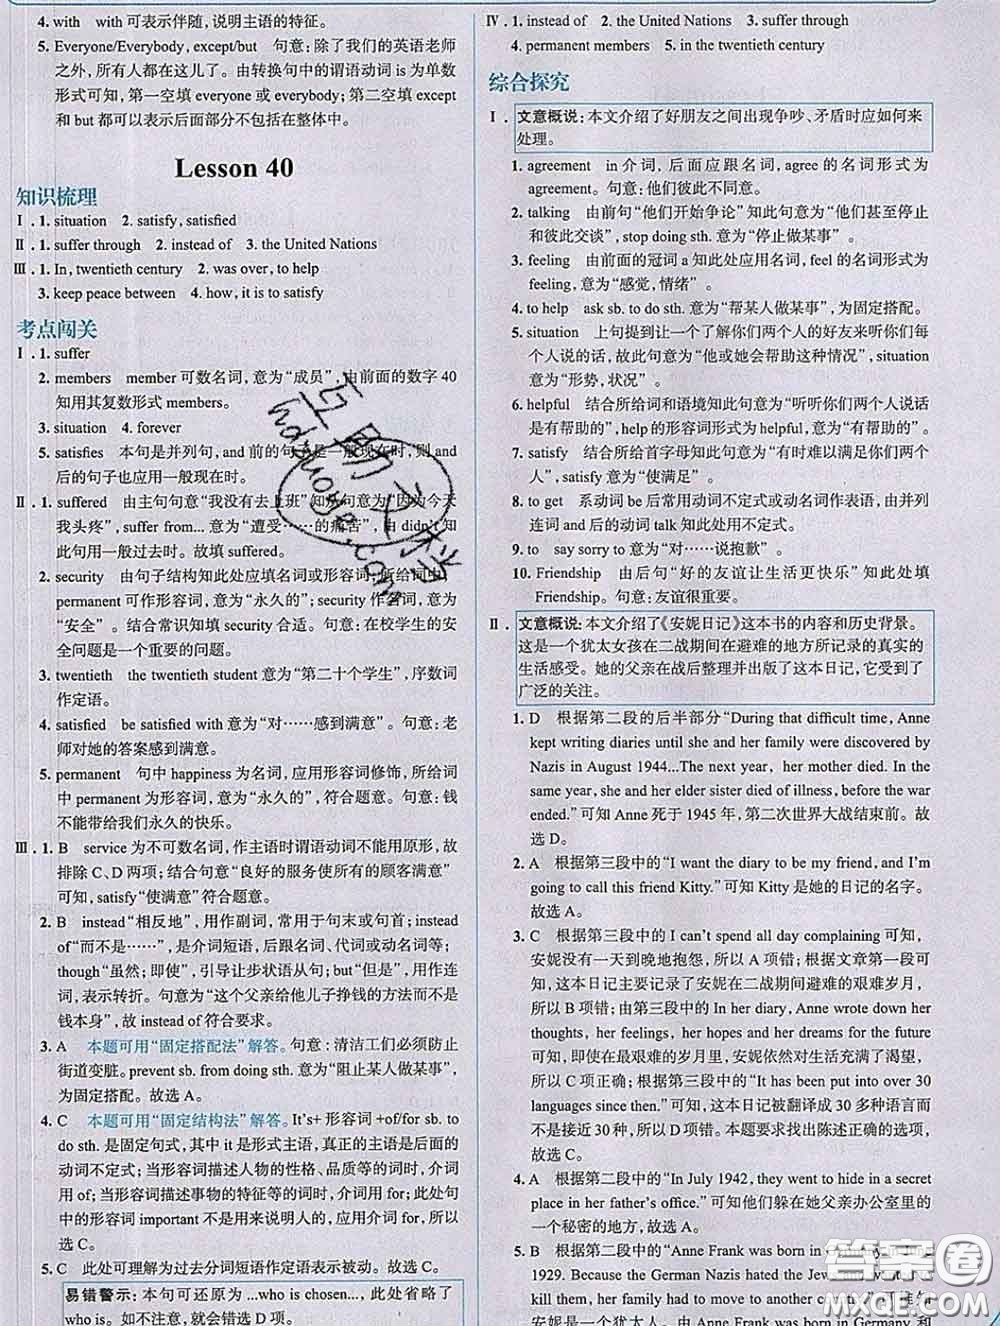 4. with with 可表示伴随，说明主语的特征。
5. Everyone/Everybody, except/but 句意：除了我们的英语老师
之外，所有人都在这儿了。由转换句中的谓语动词 is 为单数
形式可知，第一空填 everyone 或 everybody；第二空填 except
和 but 都可以表示后面部分不包括在整体中。
Lesson 40
知识梳理
Ⅰ. 1. situation 2. satisfy, satisfied
Ⅱ. 1. suffer through 2. instead of 3. the United Nations
Ⅲ. 1. In, twentieth century 2. was over, to help
3. keep peace between 4. how, it is to satisfy
考点闯关
Ⅰ. 1. suffer
2. members member 可数名词，意为“成员”，由前面的数字 40
知用其复数形式 members。
3. situation 4. forever
5. satisfies 本句是并列句，and 前的句子是一般现在时，则 and
后的句子也应用一般现在时。
Ⅱ. 1. suffered 由主句句意“我没有去上班”知从句意为“因为今天
我头疼”，suffer from... 意为“遭受……的痛苦”，由 didn't 知
此句用一般过去时。故填 suffered。
2. security 由句子结构知此处应填名词或形容词；所给词中
permanent 可作形容词，意为“永久的”；security 作名词，意为
“安全”。结合常识知填 security 合适。句意：在校学生的安
全问题是一个重要的问题。
3. twentieth the twentieth student 意为“第二十个学生”，序数词
作定语。
4. satisfied be satisfied with 意为“对……感到满意”。句意：老
师对她的答案感到满意。
5. permanent 句中 happiness 为名词，应用形容词修饰，所给词
中 permanent 为形容词，意为“永久的”，符合题意。句意：钱
不能带给我们永久的快乐。
Ⅲ. 1. B service 为不可数名词，作主语时谓语动词不能用原形，故
排除 C、D 两项；结合句意“良好的服务使所有的顾客满意”
可知，satisfy“使满意”符合题意。
2. B instead“相反地”，用作副词，常用于句末或句首；instead
of“而不是……”，是介词短语，后跟名词、代词或动名词等；
though“虽然；即使”，引导让步状语从句；but“但是”，用作连
词，表示转折。句意为“这个父亲给他儿子挣钱的方法而不是
钱本身”，故 instead of 符合要求。
3. A 本题可用“固定搭配法”解答。句意：清洁工们必须防止
街道变脏。prevent sb. from doing sth. 意为“阻止某人做某事”，
为固定搭配。故选 A。
4. C 本题可用“固定结构法”解答。It's+ 形容词 +of/for sb. to
do sth. 是固定句式，其中 it 是形式主语，真正的主语是后面的
动词不定式；当形容词描述人物的性格、品质等的词时，介词
用 of；当形容词描述事物的特征等的词时，介词用 for；此处句
中的形容词 important 不是用来说明人的，应用介词 for，所以
选 C。
5. C 此处可理解为过去分词短语作定语表示被动。故选 C。
易错警示：本句可还原为 ...who is chosen...，此处省略了
who is。如不注意，就会错选 D 项。
Ⅳ. 1. instead of 2. the United Nations 3. suffer through
4. permanent members 5. in the twentieth century
综合探究
Ⅰ. 文意概说：本文介绍了好朋友之间出现争吵、矛盾时应如何来
处理。
1. agreement in 介词，后面应跟名词，agree 的名词形式为
agreement。句意：他们彼此不同意。
2. talking 由前句“他们开始争论”知此句意为“他们甚至停止
和彼此交谈”，stop doing sth. 意为“停止做某事”。
3. feeling 由前面的冠词 a 知此处应用名词，feel 的名词形式为
feeling，意为“感觉，情绪”。
4. to help ask sb. to do sth. 意为“帮某人做某事”，为固定搭配。
5. situation 上句提到让一个了解你们两个人的好友来听你们每
个人说的话，故此句意为“他或她会帮助这种情况”，situation
意为“形势，状况”。
6. helpful 结合所给词和语境知此句意为“听听你们两个人说话
是有帮助的”，help 的形容词形式为 helpful，意为“有帮助的”。
7. satisfy 结合所给首字母知此句意为“有时难以满足你们两个
人”，satisfy 意为“使满足”。
8. to get 系动词 be 后常用动词不定式或动名词作表语，由并列
连词 and 后的动词 talk 知此处用不定式。
9. to say sorry to 意为“对……说抱歉”。
10. Friendship 由后句“好的友谊让生活更快乐”知此处填
Friendship。句意：友谊很重要。
Ⅱ. 文意概说：本文介绍了《安妮日记》这本书的内容和历史背景。
这是一个犹太女孩在二战期间在避难的地方所记录的真实的
生活感受。她的父亲在战后整理并出版了这本日记，它受到了
广泛的关注。
1. D 根据第二段的后半部分“During that difficult time, Anne
kept writing diaries until she and her family were discovered by
Nazis in August 1944...The next year, her mother died. In the
same year, she and her elder sister died of illness, before the war
ended.”可知 Anne 死于 1945 年，第二次世界大战结束前。故
选 D。
2. A 根据第三段中的“I want the diary to be my friend, and I'm
going to call this friend Kitty.”可知 Kitty 是她的日记的名字。
故选 A。
3. C 根据第三段中的 I can't spend all day complaining 可知，
安妮没有一天到晚地抱怨，所以 A 项错；根据文章第一段可
知，本日记主要记录了安妮在二战期间避难的艰难岁月，所
以 B 项错；由第三段中的 In her diary, Anne wrote down her
thoughts, her feelings, her hopes and her dreams for the future
可知，即使在最艰难的岁月里，安妮依然对生活充满了渴望，
所以 C 项正确；根据第三段中的“It has been put into over 30
languages since then.”可知，这本日记被翻译成 30 多种语言而
不是被翻译 30 种，所以 D 项错。本题要求找出陈述正确的选项，
故选 C。
4. A 根据第二段中的“In July 1942, they went to hide in a secret
place in her father's office.”可知他们躲在她父亲办公室里的
一个秘密的地方，故选 A。
5. B 根据第二段中的“Anne Frank was born in
1929. Because the German Nazis hated the
kill them, her family had to move to another
安妮是一个犹太人，由于
互助文档
hdzuoye.com
答案圈
MXQE.COM